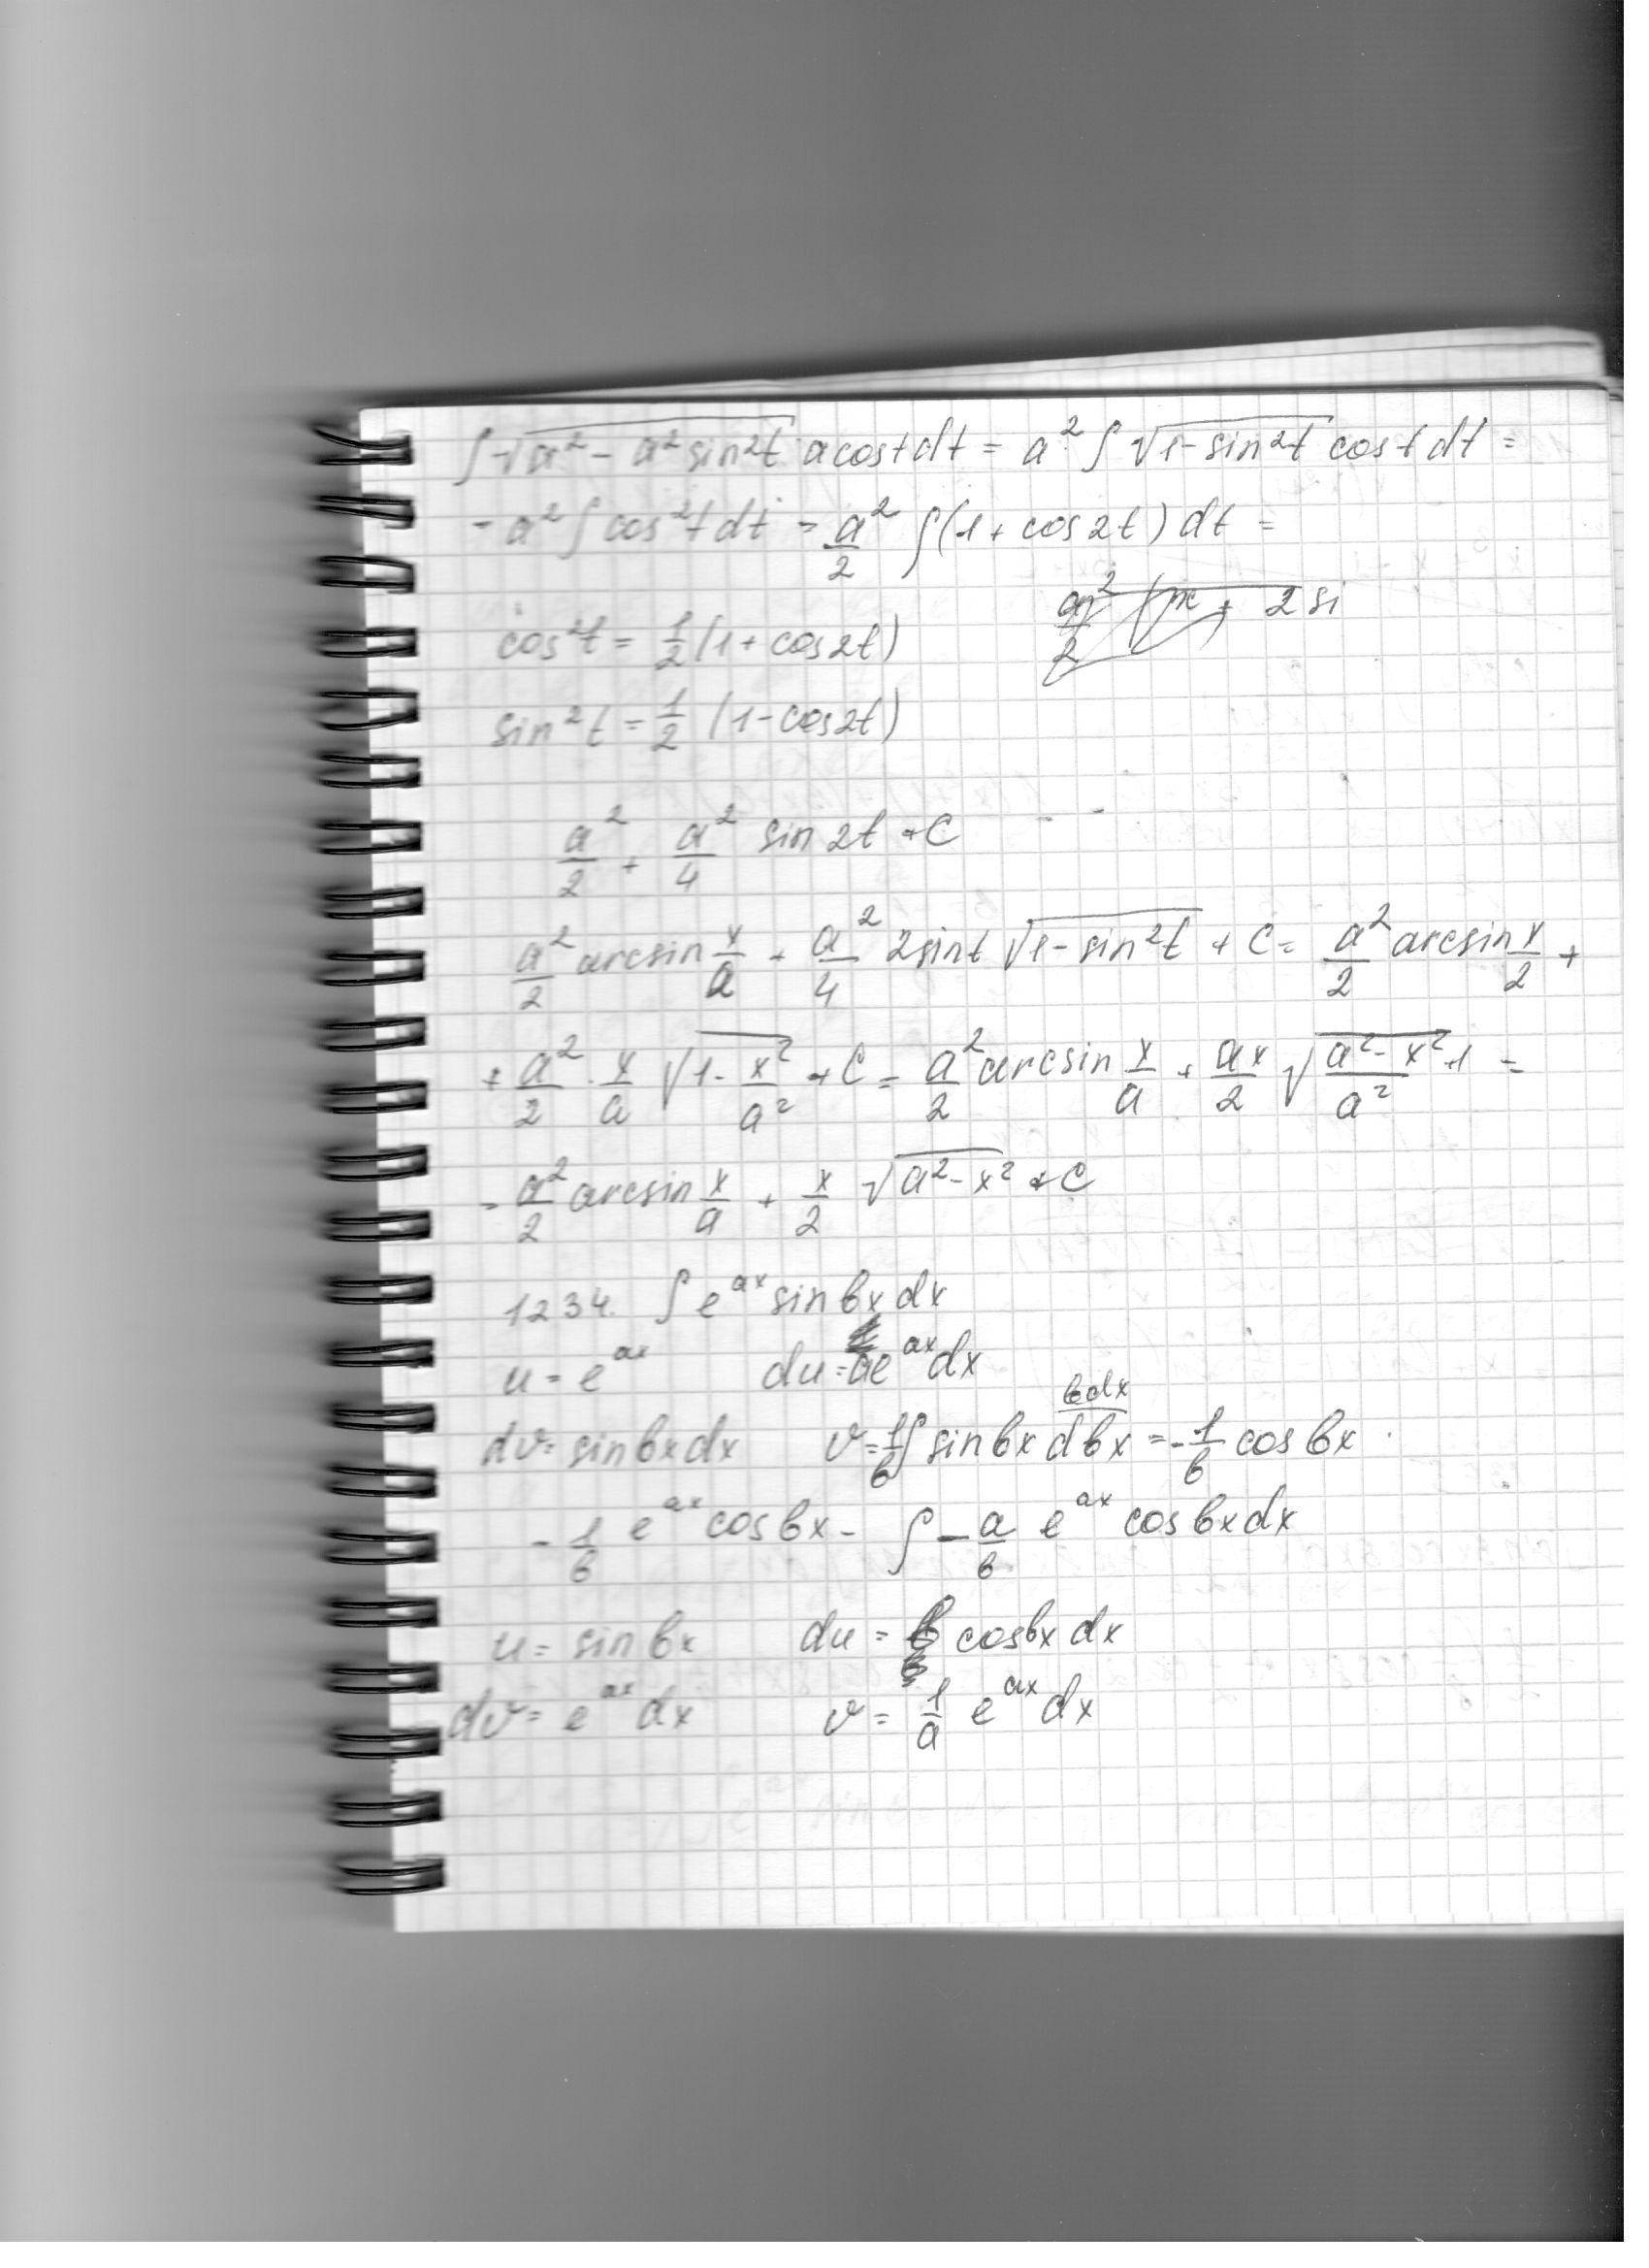 ∫√(a² - a² sin²t) a cost dt = a² ∫ √(1-sin²t) cost dt =
= a² ∫ cos²t dt = a²/2 ∫ (1 + cos2t) dt =
cos²t = 1/2 (1 + cos2t)
sin²t = 1/2 (1 - cos2t)
a²/2 + a²/4 sin 2t + C
a²/2 arcsin x/a + a²/4 2sint √(1-sin²t) + C = a²/2 arcsin x/2 +
+ a²/2 · x/a √(1 - x²/a²) + C = a²/2 arcsin x/a + ax/2 √((a²-x²)/a²) + 1 =
= a²/2 arcsin x/a + x/2 √(a²-x²) + C
1234. ∫ e^ax sin bx dx
u = e^ax du = ae^ax dx
bdx
dv = sin bx dx v = 1/b ∫ sin bx dbx = -1/b cos bx
-1/b e^ax cos bx - ∫ - a/b e^ax cos bx dx
u = sin bx du = b cos bx dx
dv = e^ax dx v = 1/a e^ax dx